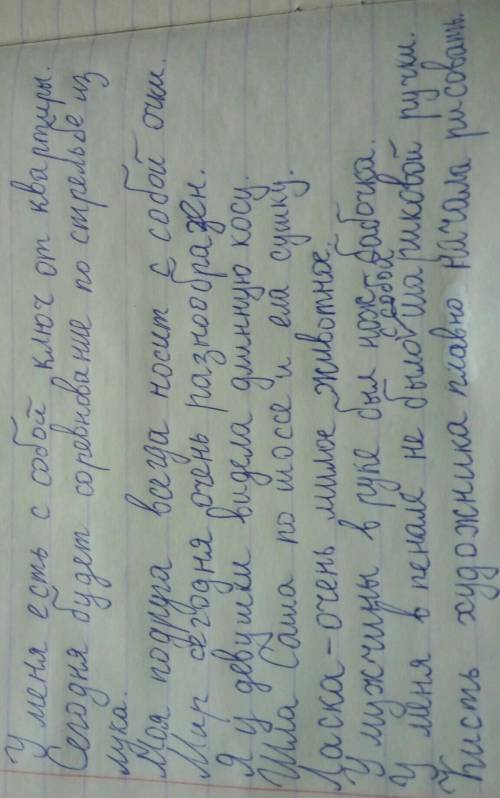 У меня есть с собой ключ от квартиры.
Сегодня будет соревнование по стрельбе из
лука.
Моя подруга всегда носит с собой очки.
Мир сегодня очень разнообразен.
Я у девушки видела длинную косу.
Шла Саша по шоссе и ела сушку.
Ласка - очень милое животное.
У мужчины в руке был нож-бабочка.
У меня в пенале не было с собой шариковой ручки.
Кисть художника плавно начала рисовать.